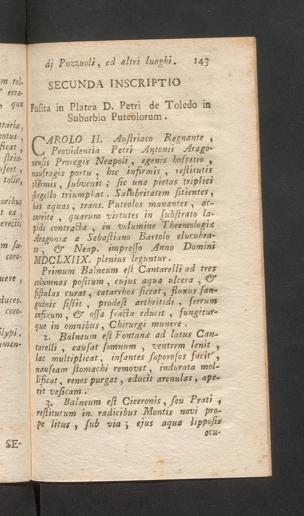 di Pozzuoli, ed altri luoghi. 143
SECUNDA INSCRIPTIO
Posita in Platea D. Petri de Toledo in
Suburbio Puteolorum.
CAROLO II. Austriaco Regnante,
Providentia Petri Antonii Arago-
nensis Proregis Neapoli, egenis hospitio,
naufragis portu, hic infirmis, restitutis
thermis, subvenit; sic una pietas triplici
flagello triumphat. Salubritatem sitientes,
has aquas, trans. Puteolos manantes, ac-
currite, quarum virtutes in substrato la-
pide contractæ, in volumine Thermologiæ
Aragoniæ a Sebastiano Bartolo elucubra-
to, & Neap. impresso Anno Domini
MDCLXIIX. plenius leguntur.
Primum Balneum est Cantarelli ad tres
columnas positum, cujus aqua ulcera, &
fistulas curat, catarrhos siccat, fluxus san-
guinis sistit, prodest arthritidi, ferrum
infixum, & ossa fracta educit, fungitur-
que in omnibus, Chirurgi munere.
2. Balneum est Fontanæ ad latus Can-
tarelli, causat somnum, ventrem lenit,
lac multiplicat, infantes soporosos facit,
nauseam stomachi removet, indurata mol-
lificat, renes purgat, educit arenulas, ape-
rit vesicam.
3. Balneum est Ciceronis, seu Prati,
restitutum in radicibus Montis novi pro-
pe litus, sub via; ejus aqua lipposis
ocu-
SE-